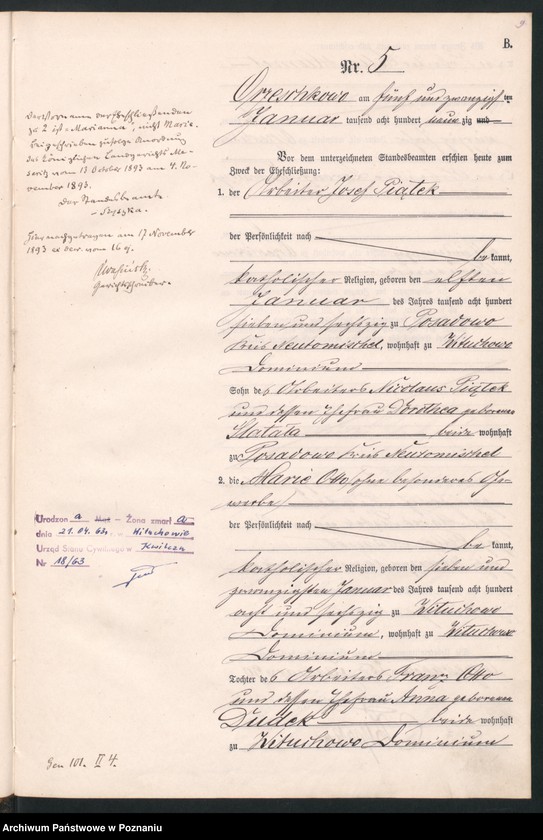 9
B.
Nr. 5
Orzeschkowo am fünf und zwanzigsten
Januar tausend acht hundert neunzig und
Vor dem unterzeichneten Standesbeamten erschien heute zum
Zweck der Eheschließung:
1. der Arbeiter Josef Piątek
der Persönlichkeit nach
be kannt,
katholischer Religion, geboren den elften
Januar des Jahres tausend acht hundert
sieben und sechzig zu Posadowo
Kreis Neutomischel, wohnhaft zu Wituchowo
Dominium
Sohn des Arbeiters Nicolaus Piątek
und dessen Ehefrau Dorothea geborenen
beide wohnhaft
zu Posadowo Kreis Neutomischel
2. die Marie Otto ohne besonderes Ge-
werbe
der Persönlichkeit nach
be kannt,
katholischer Religion, geboren den sieben und
zwanzigsten Januar des Jahres tausend acht hundert
acht und sechzig zu Wituchowo
Dominium, wohnhaft zu Wituchowo
Dominium
Tochter des Arbeiters Franz Otto
und dessen Ehefrau Anna geborenen
Dudek beide wohnhaft
zu Wituchowo Dominium
Der Vorname der Eheschließenden
zu 2 ist „Marianna", nicht Marie.
Beigeschrieben zufolge Anordnung
des Königlichen Landgerichts Me-
seritz vom 13 October 1893 am 4. No-
vember 1893.
Der Standesbeamte
Hier nachgetragen am 17 November
1893
Gerichtsschreiber.
Urodzon a - Żona zmarł a
dnia 21.04.63r. w Wituchowie
Urząd Stanu Cywilnego w Kwilczu
Nr 18/63
Gen 101. II 4.
Archiwum Państwowe w Poznaniu